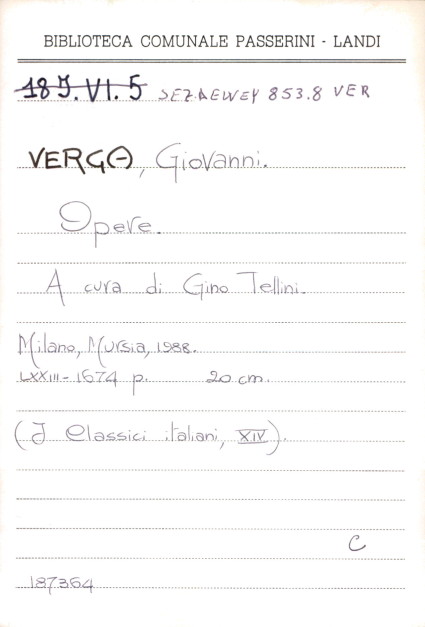 BIBLIOTECA COMUNALE PASSERINI - LANDI
18 J. VI. 5 SEZ. DEWEY 853.8 VER
VERGA, Giovanni.
Opere.
A cura di Gino Tellini.
Milano, Mursia, 1988.
LXXIII - 1674 p. 20 cm.
(I Classici italiani, XIV).
C
187364